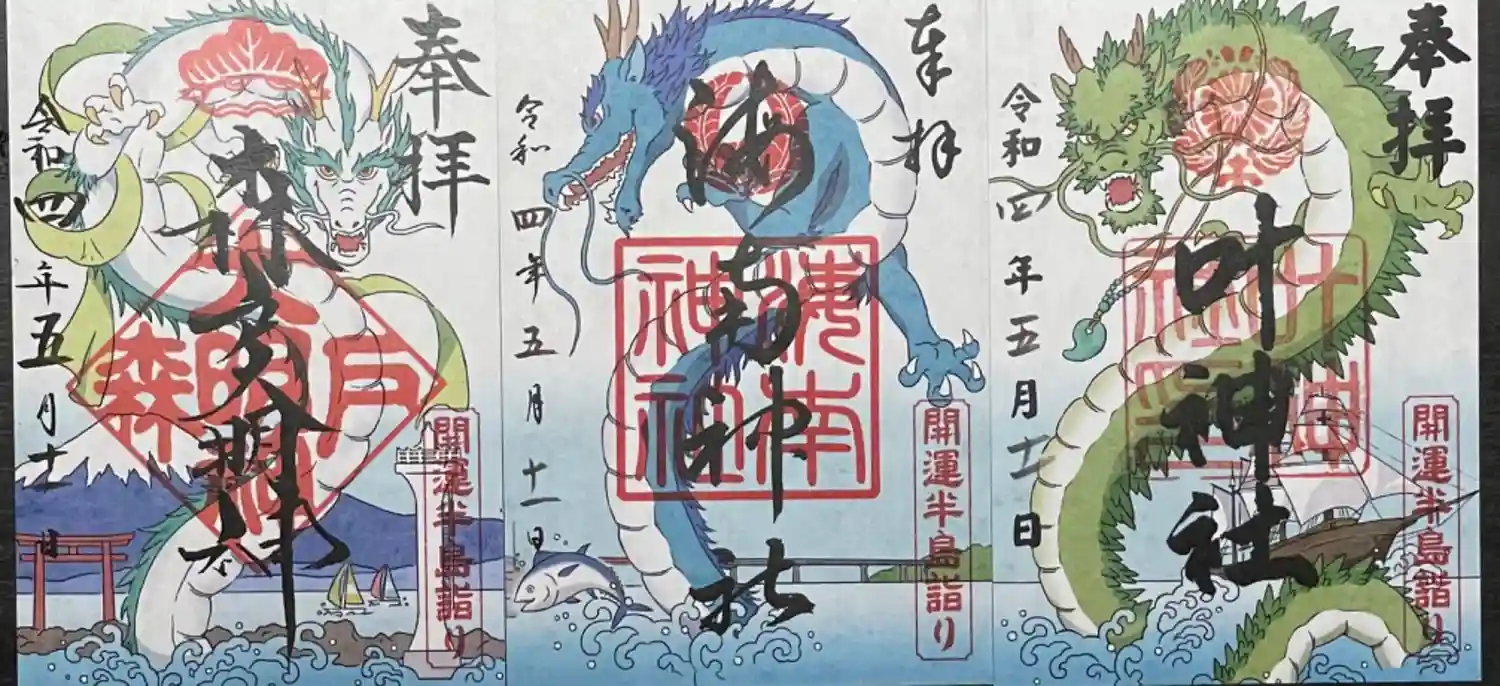 奉拝
開運半島詣り
叶神社
令和四年五月十一日
奉拝
開運半島詣り
海南神社
海南
神社
令和四年五月十一日
奉拝
開運半島詣り
森戸大明神
森戸大明神
令和四年五月十一日